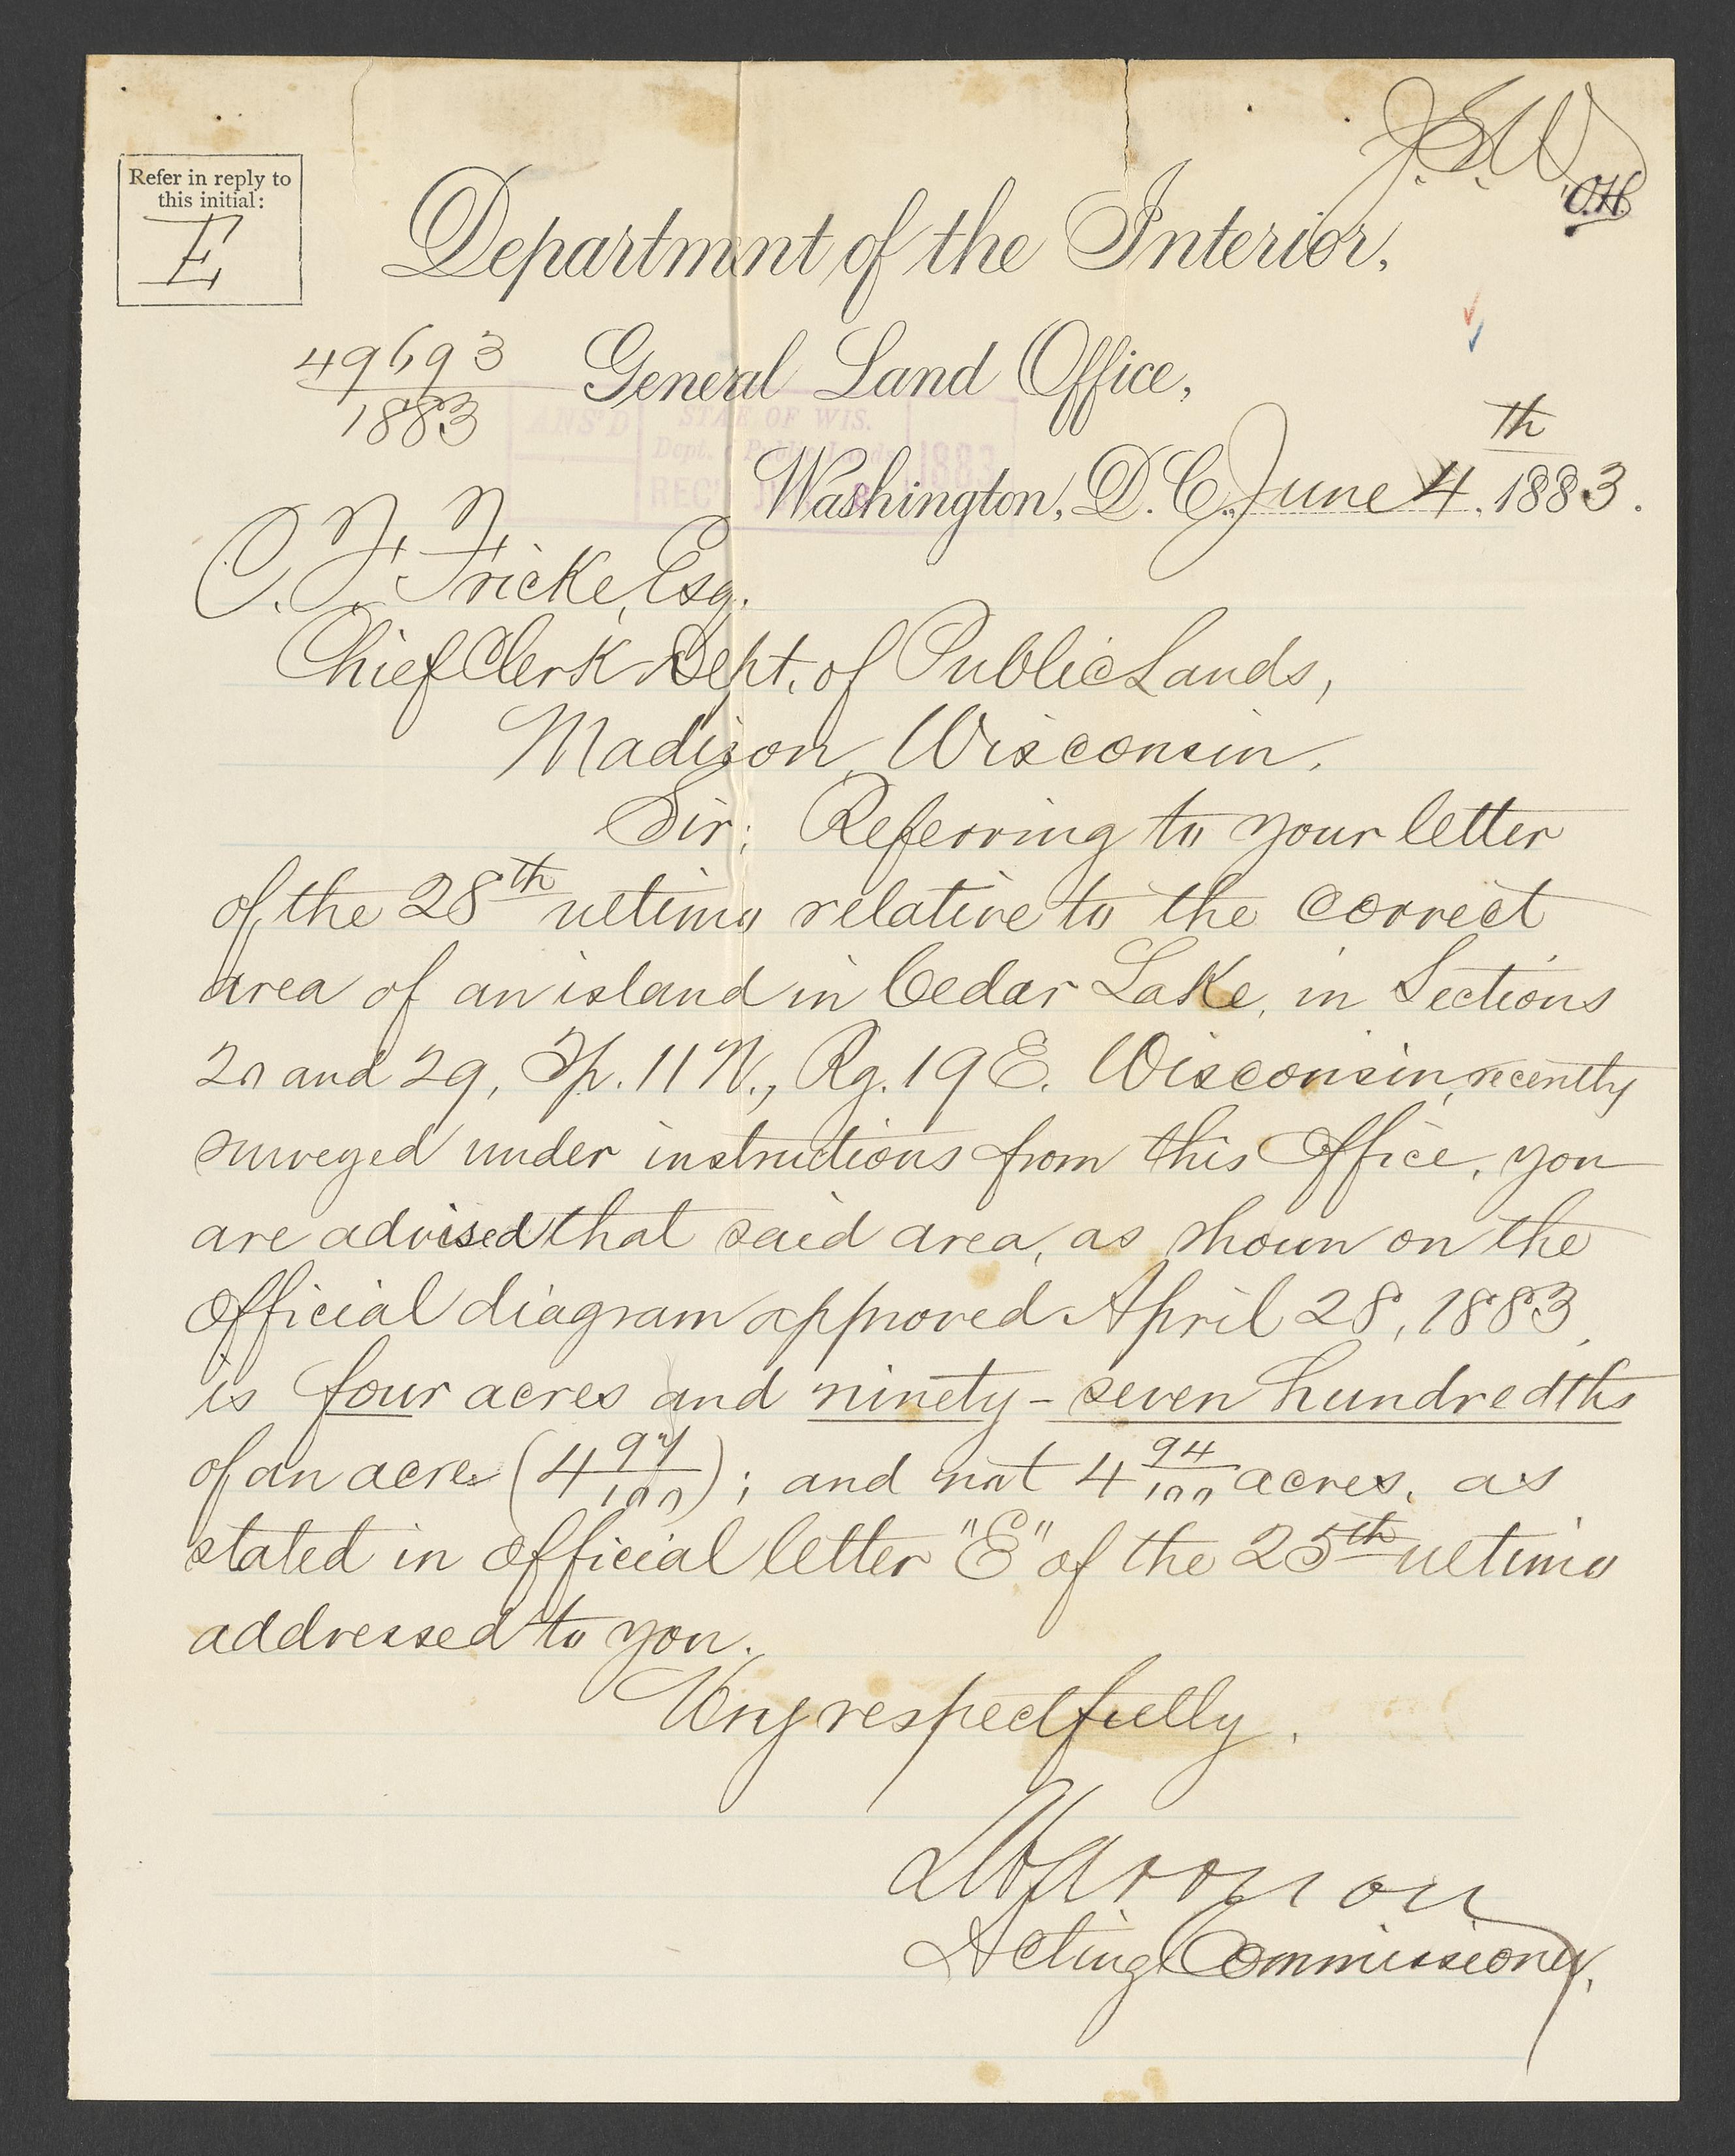 J.S.W.
O.H.
Refer in reply to
this initial:
E
Department of the Interior,
49693
1883
General Land Office,
ANS'D
STATE OF WIS.
Dept. of Public Lands
REC'D
1883
Washington, D.C., June 4th, 1883.
C. F. Fricke, Esq.
Chief Clerk Dept. of Public Lands,
Madison, Wisconsin.
Sir: Referring to your letter
of the 28th ultimo relative to the correct
area of an island in Cedar Lake, in Sections
20 and 29, Tp. 11 N., Rg. 19 E. Wisconsin, recently
surveyed under instructions from this Office, you
are advised that said area, as shown on the
Official diagram approved April 28, 1883,
is four acres and ninety-seven hundredths
of an acre (4 97/100); and not 4 94/100 acres, as
stated in official letter "E" of the 25th ultimo
addressed to you.
Very respectfully.
L Harrison
Acting Commissioner.